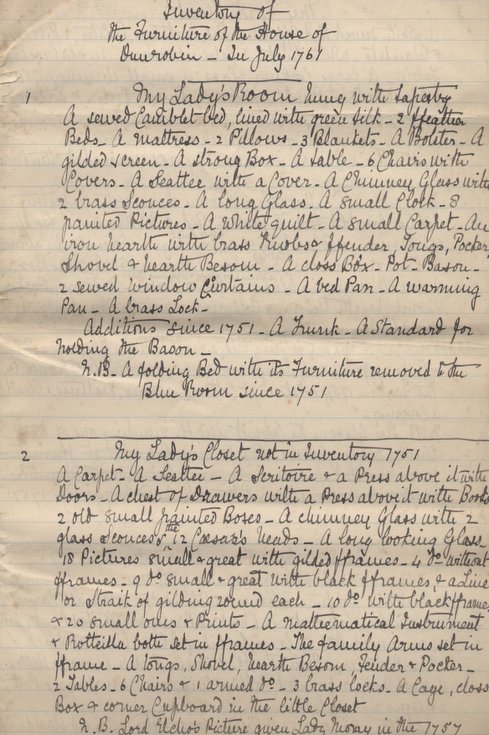 Inventory of
the Furniture of the House of
Dunrobin - In July 1761
1 My Lady's Room Hung with Tapestry
A sewed Camblet bed, lined with green silk - 2 ffeather
Beds - A mattress - 2 Pillows - 3 Blankets - A Bolster - A
gilded screen - A strong Box - A table - 6 Chairs with
Covers - A Seattee with a Cover - A Chimney Glass with
2 brass Sconces - A long Glass - A small Clock - 8
painted Pictures - A white quilt - A small Carpet - An
iron hearth with brass knobs & ffender, Tongs, Pocker,
Shovel & hearth Besom - A closs Box - Pot - Bason -
2 sewed window Curtains - A bed Pan - A warming
Pan - A brass Lock -
Additions since 1751 - A Trunk - A Standard for
holding the Bason -
N.B. - A folding Bed with its Furniture removed to the
Blue Room since 1751
2 My Lady's Closet not in Inventory 1751
A Carpet - A Seattee - A Scritoire & a Press above it with
Doors - A chest of Drawers with a Press above it with Books
2 old small painted Boxes - A chimney Glass with 2
glass Sconces - the 12 Cæsar's heads - A long looking Glass
18 Pictures small & great with gilded fframes - 4 do without
fframes - 9 do small & great with black fframes & a Line
or Strait of gilding round each - 10 do with black fframes
& 20 small ones & Prints - A mathematical Instrument
& both set in fframes - The family Arms set in
fframe - A tongs, Shovel, hearth Besom, fender & Pocker -
2 Tables - 6 Chairs & 1 armed do - 3 brass locks - A Cage, closs
Box & corner Cupboard in the little Closet
N.B. Lord Elcho's Picture given Lady Moray in the 1757